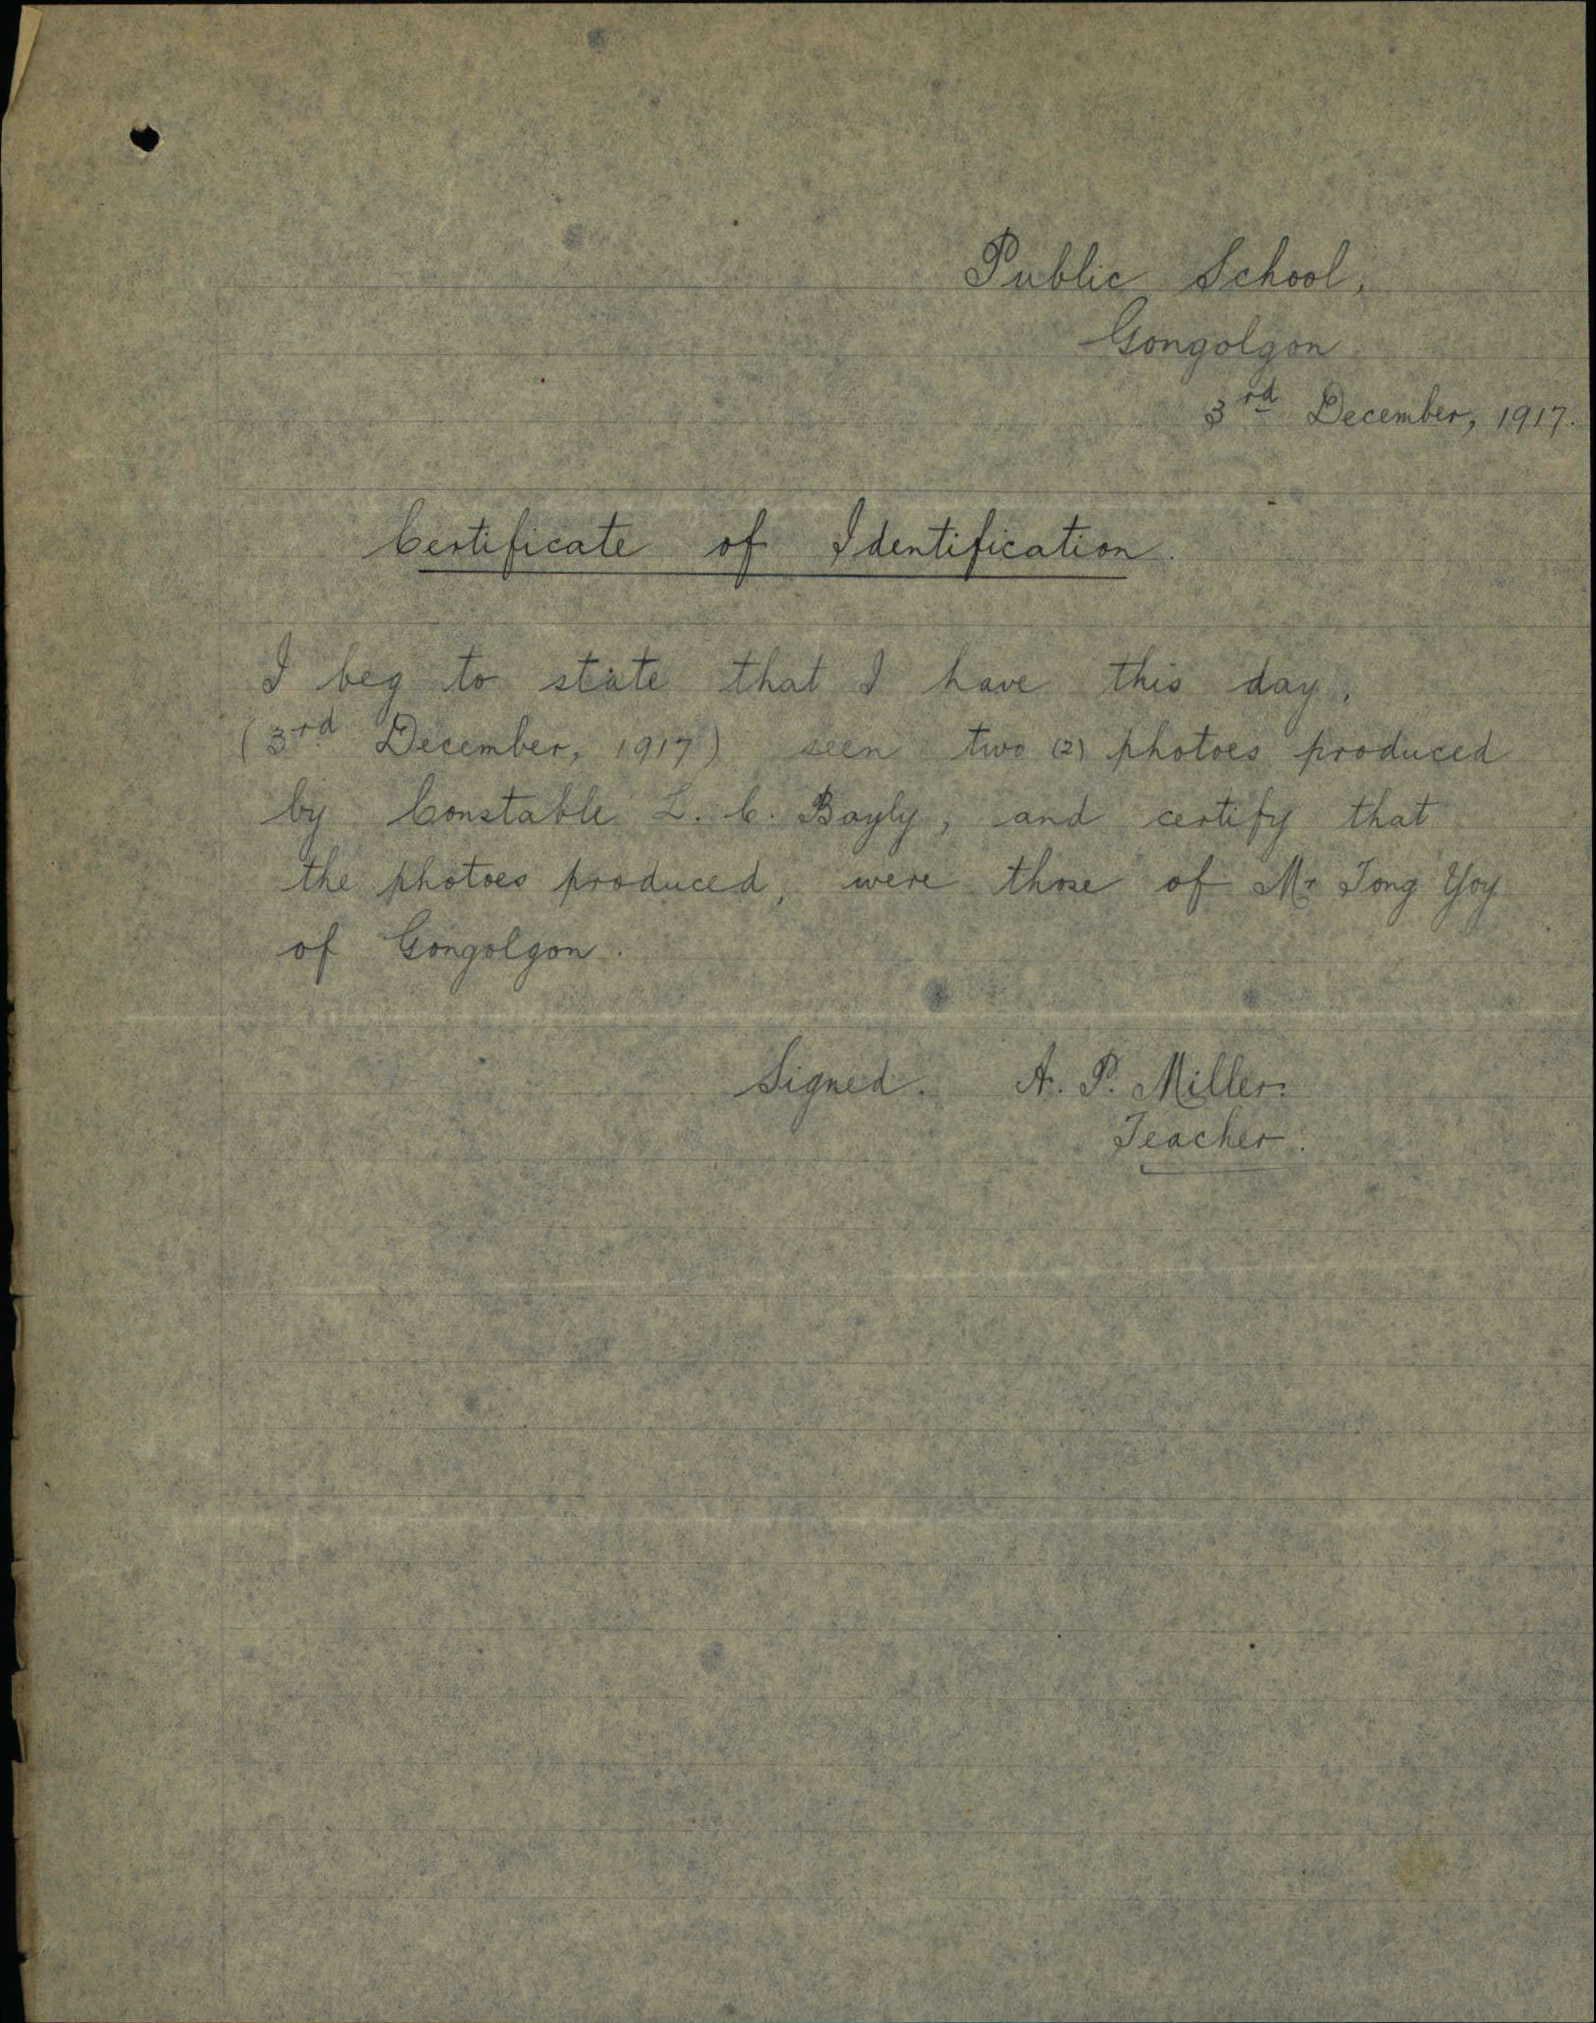 Public School,
Gongolgon
3rd December, 1917.
Certificate of Identification.
I beg to state that I have this day,
(3rd December, 1917) seen two (2) photoes produced
by Constable L. C. Bayly, and certify that
the photoes produced, were those of Mr Tong Yoy
of Gongolgon.
Signed. A. P. Miller.
Teacher.